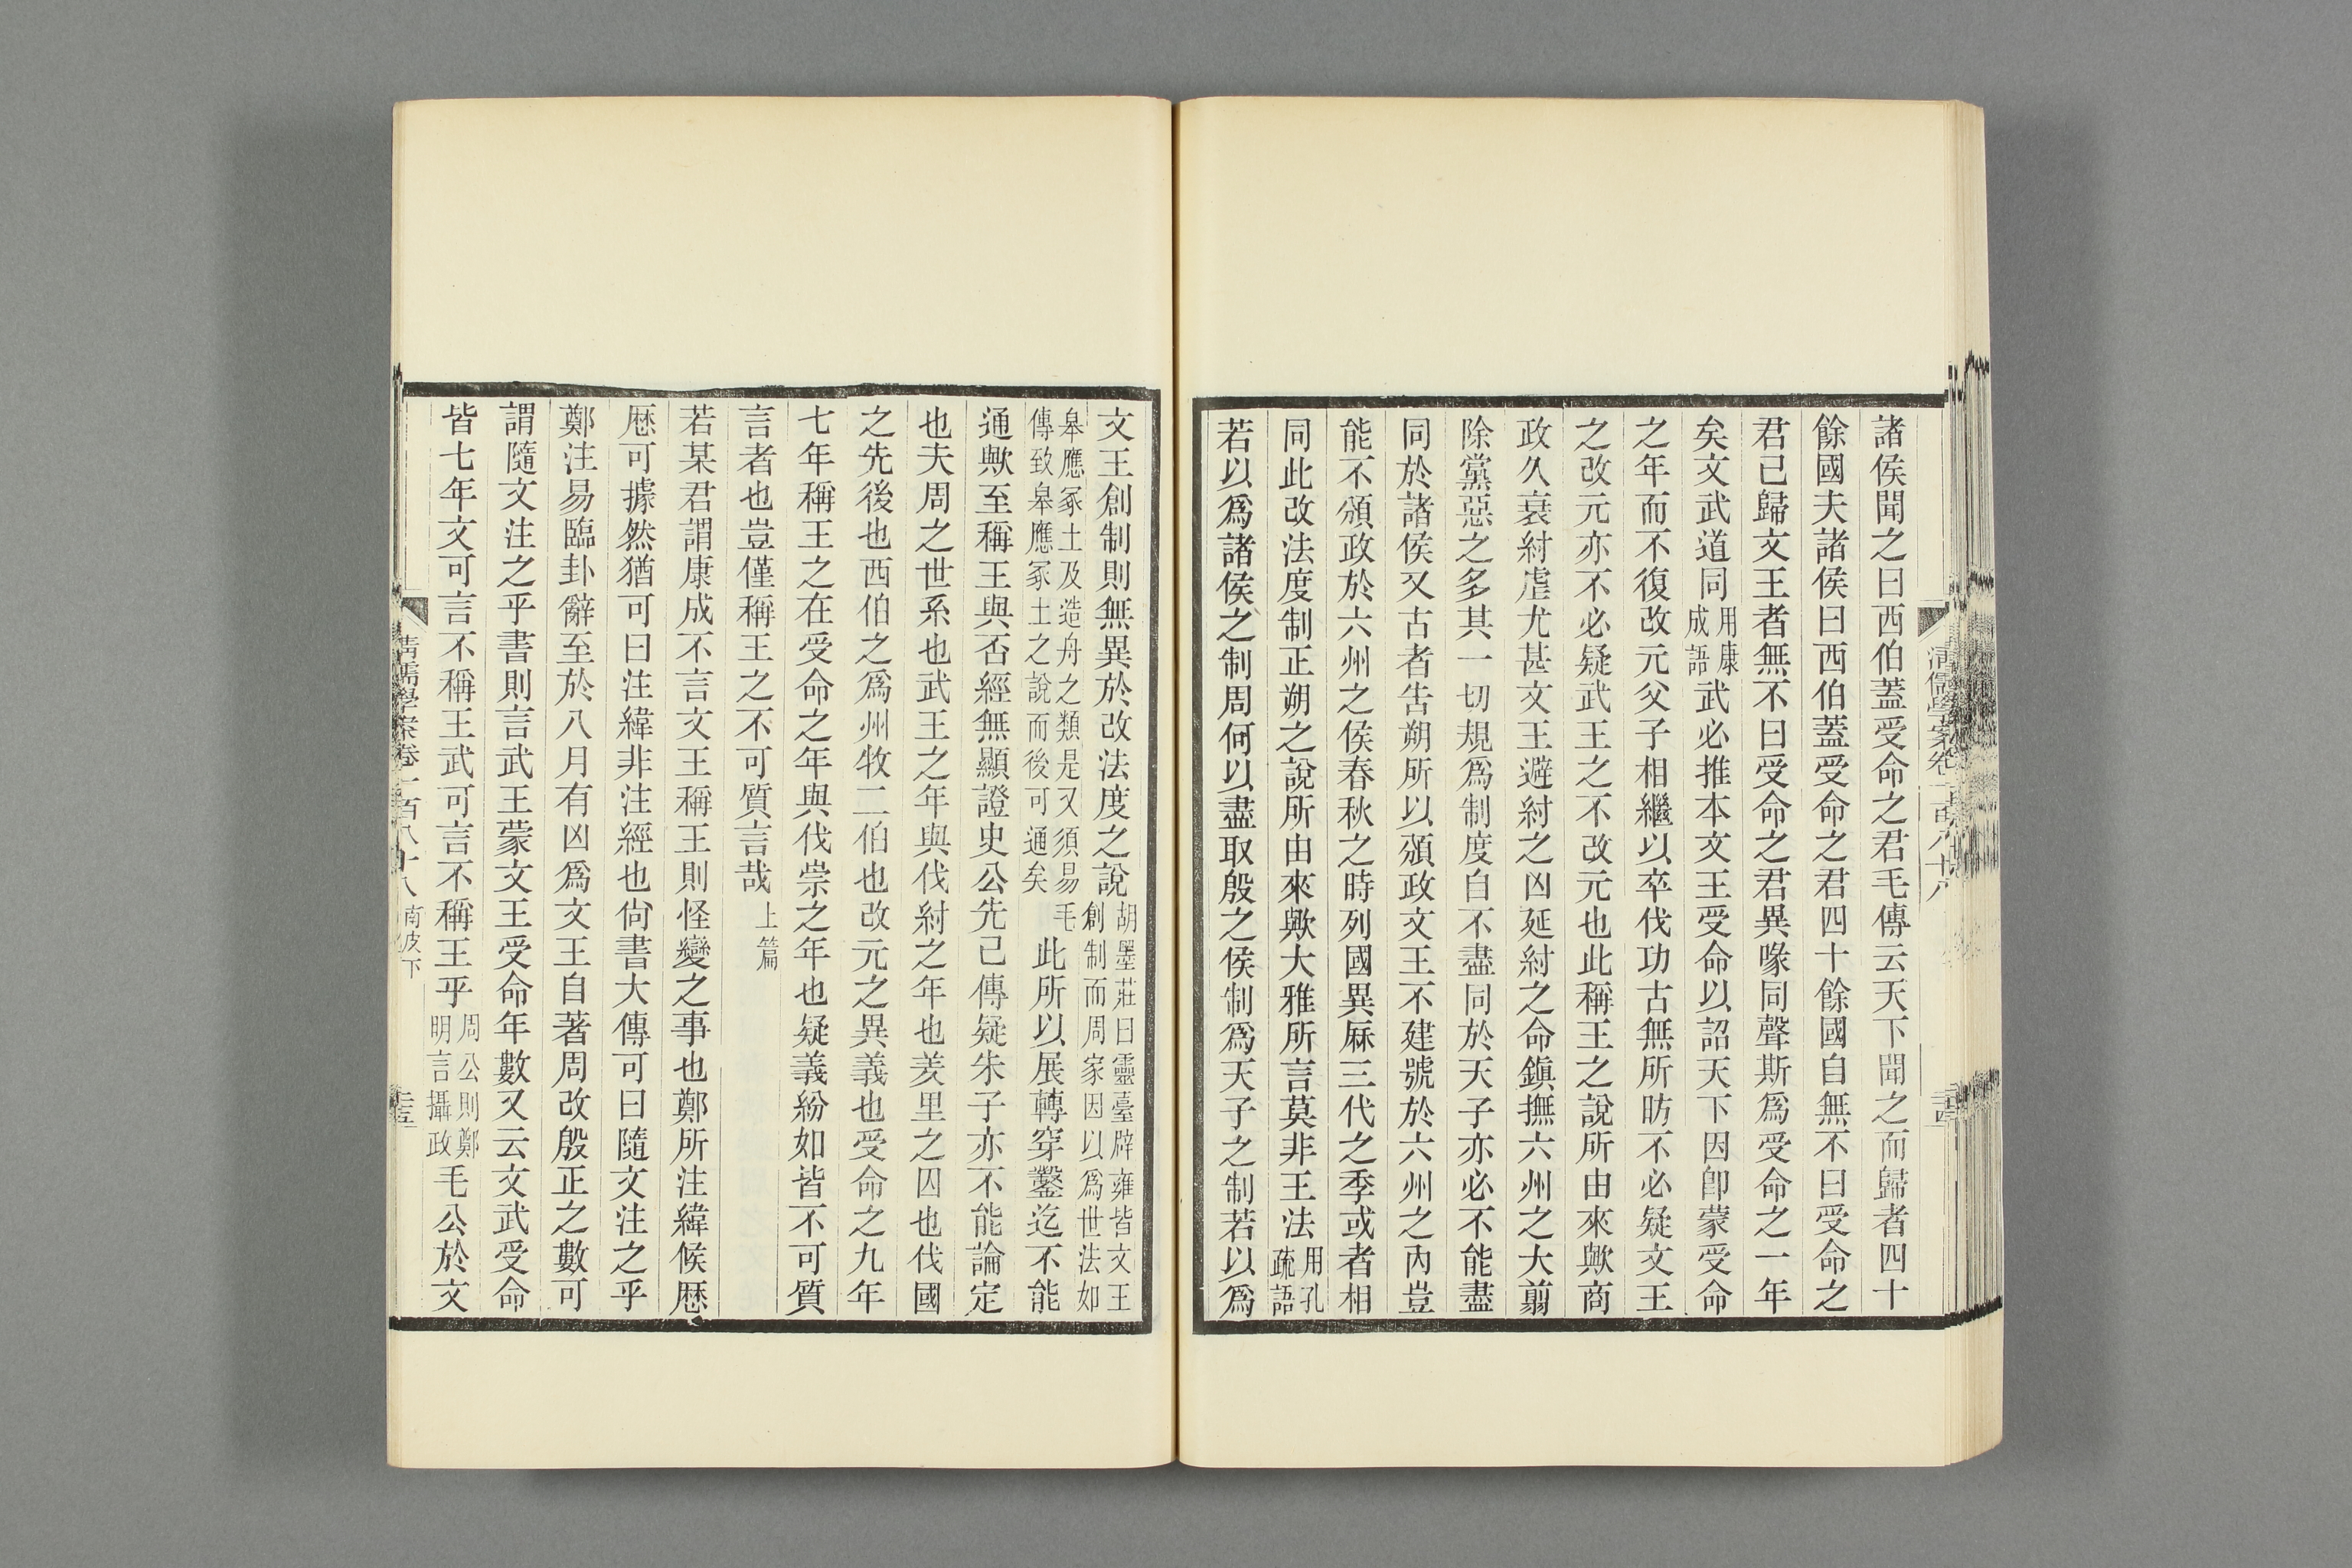 諸侯聞之曰西伯蓋受命之君毛傳云天下聞之而歸者四十
餘國夫諸侯曰西伯蓋受命之君四十餘國自無不曰受命之
君已歸文王者無不曰受命之君異喙同聲斯爲受命之一年
矣文武道同用康成語武必推本文王受命以詔天下因卽蒙受命
之年而不復改元父子相繼以卒伐功古無所昉不必疑文王
之改元亦不必疑武王之不改元也此稱王之說所由來歟商
政久衰紂虐尤甚文王避紂之凶延紂之命鎭撫六州之大翦
除黨惡之多其一切規爲制度自不盡同於天子亦必不能盡
同於諸侯又古者告朔所以頒政文王不建號於六州之內豈
能不頒政於六州之侯春秋之時列國異厤三代之季或者相
同此改法度制正朔之說所由來歟大雅所言莫非王法用孔疏語
若以爲諸侯之制周何以盡取殷之侯制爲天子之制若以爲
清儒學案卷一百八十八
文王創制則無異於改法度之說胡墨莊曰靈臺辟雍皆文王創制而周家因以爲世法如
皋應冢土及造舟之類是又須易毛傳致皋應冢土之說而後可通矣此所以展轉穿鑿迄不能
通歟至稱王與否經無顯證史公先已傳疑朱子亦不能論定
也夫周之世系也武王之年與伐紂之年也羑里之囚也伐國
之先後也西伯之爲州牧二伯也改元之異義也受命之九年
七年稱王之在受命之年與伐崇之年也疑義紛如皆不可質
言者也豈僅稱王之不可質言哉上篇
若某君謂康成不言文王稱王則怪變之事也鄭所注緯候歷
歷可據然猶可曰注緯非注經也尙書大傳可曰隨文注之乎
鄭注易臨卦辭至於八月有凶爲文王自著周改殷正之數可
謂隨文注之乎書則言武王蒙文王受命年數又云文武受命
皆七年文可言不稱王武可言不稱王乎周公則鄭明言攝政毛公於文
清儒學案卷一百八十八 南皮下